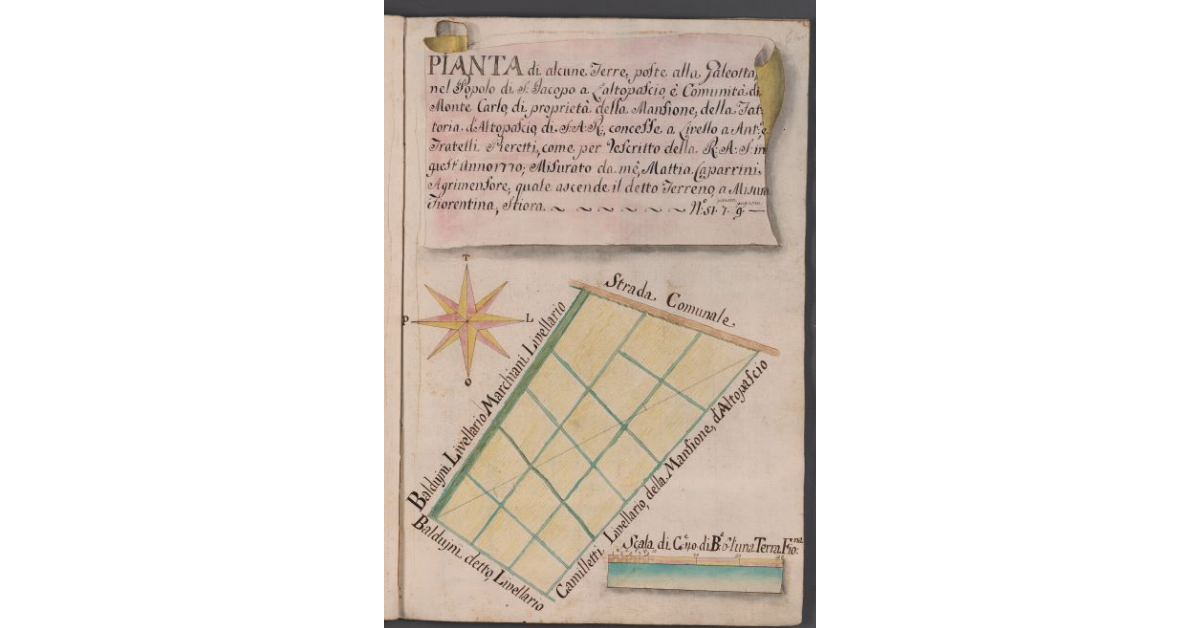 PIANTA di alcune Terre, poste alla Galeotta,
nel Popolo di S: Jacopo a L'altopascio, è Comunità di
Monte Carlo, di proprietà della Mansione, della Fat:
toria d'Altopascio, di S:A:R:, concesse a Livello a Ant:e
Fratelli Pieretti, come per Rescritto della R:A:S: in
quest'Anno 1770, Misurato da mè, Mattia Caparrini,
Agrimensore, quale ascende il detto Terreno, a Misura
Fiorentina, Stiora ~ ~ ~ ~ ~ ~ N.° 51. 7. 9 —
T
P
L
O
Strada Comunale
Baldujni Livellario Marchiani Livellario
Baldujni detto, Livellario
Camilletti Livellario, della Mansione, d'Altopascio
Scala di
Terra